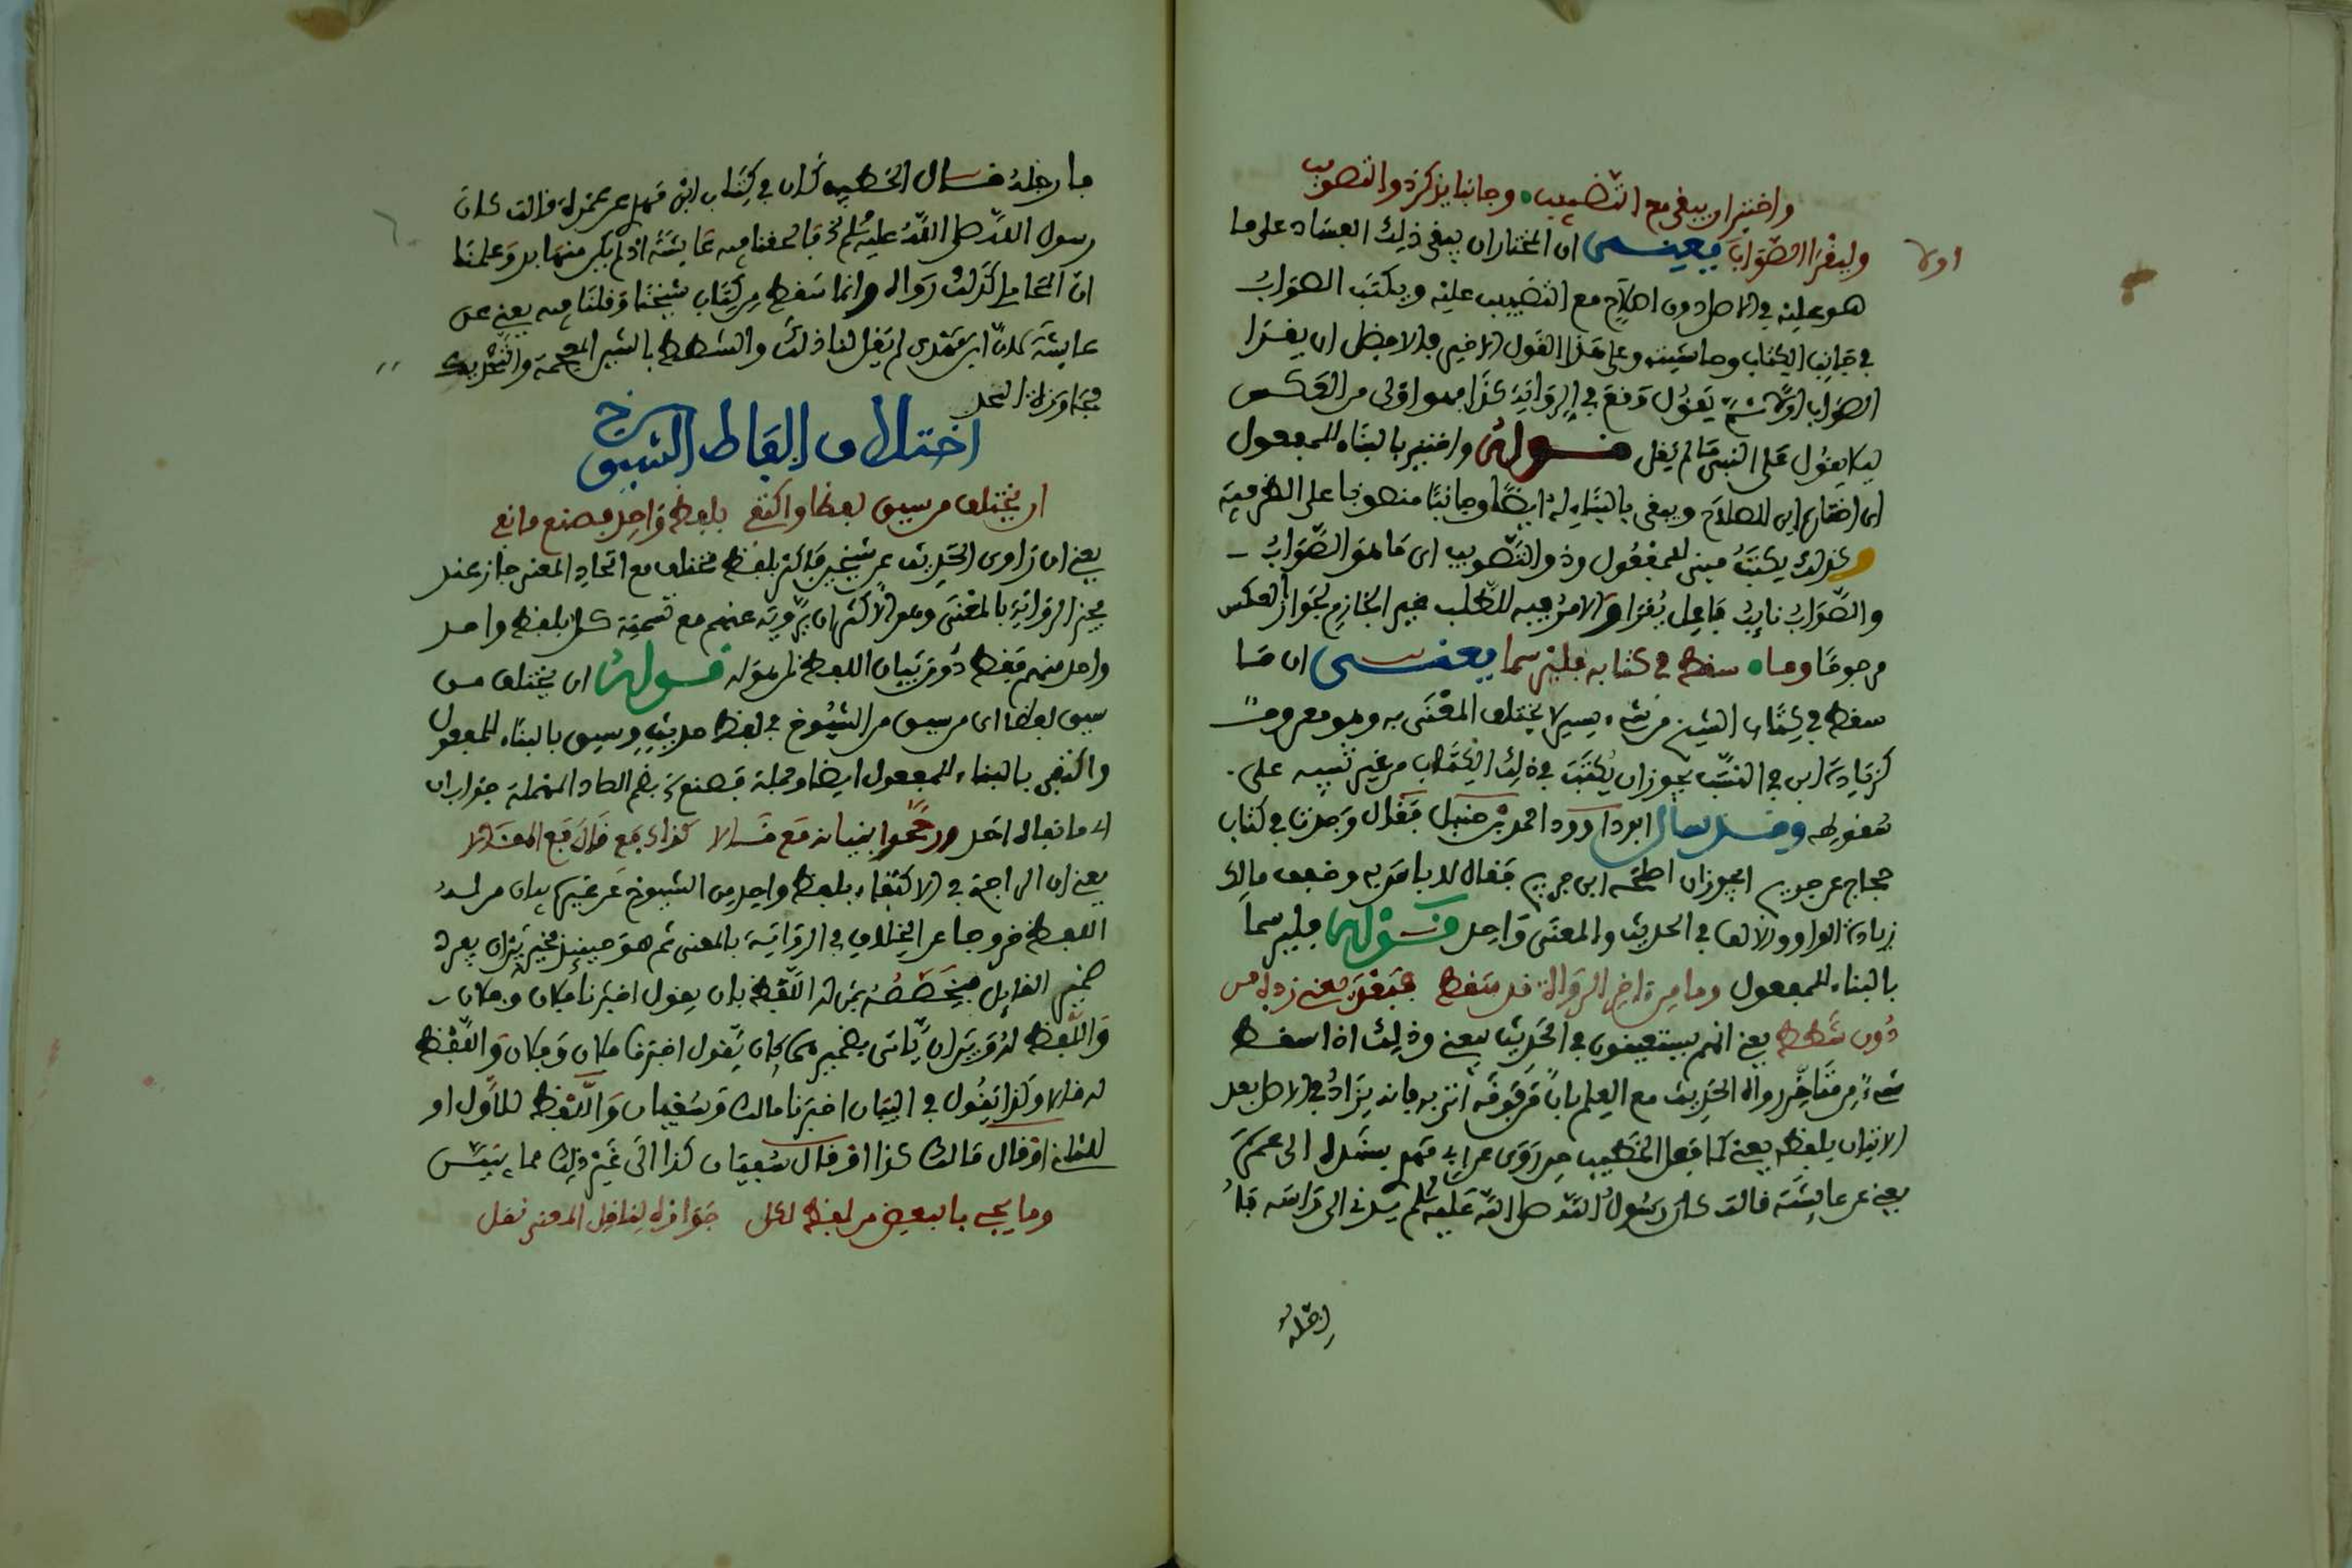 واختير ان يبقى مع التضبيب • وجانبا يذكر ذو التصويب
وليقرا الصواب يعنى ان المختار ان يبقى ذلك الفساد على ما
اولا
هو عليه في الاصل دون اصلاح مع التضبيب عليه ويكتب الصواب
في جانب الكتاب وحاشيته وعلى هذا القول الاخير فالافضل ان يقرا
الصواب اولا ثم يقول وقع في الرواية كذا فهو اولى من العكس
ليلا يقول على النبي ما لم يقل قوله واختير بالبناء للمفعول
اى اختار اى للصلاح ويبقى بالبناء له ايضا وجانبا منصوبا على الظرفية
وكذلك يكتب مبنى للمفعول وذو التصويب اى ما هو الصواب
والصواب نايب فاعل يقرا والامر فيه للطلب غير الجازم لجواز العكس
مرجوحا وما • سقط في كتابه فليرسما يعنى ان ما
سقط في كتاب الشيخ من شيء يسير لا يختلف المعنى به وهو معروف
كزيادة ابن في النسب يجوز ان يكتب في ذلك الكتاب من غير تنبيه على
سقوطه وقد سال ابو داوود احمد بن حنبل فقال وجدت في كتاب
حجاج عن جريج ايجوز ان اصلحه ابن جريج فقال لا باس به وخفف مالك
زيادة الواو والالف في الحديث والمعنى واحد قوله فليرسما
بالبناء للمفعول وما من اخر الرواة قد سقط فبعد يعنى زده من
دون شطط يعنى انهم يستعينون في الحديث بيعنى وذلك اذا اسقط
شيء من متاخر رواة الحديث مع العلم بان من فوقه اتى به فانه يزاد في الاصل بعد
الاتيان بلفظ يعنى كما فعل الخطيب حين روى عن ابي مهدى بسنده الى عمرة
يعنى عن عايشة قالت كان رسول الله صلى الله عليه وسلم يدنى الى راسه فا
رجله
فارجله قال الخطيب كذا في كتاب ابن مهدى عن عمرة قالت كان
رسول الله صلى الله عليه وسلم الخ فالحقنا فيه عايشة اذ لم يكن منها بد وعلمنا
ان المحاملى كذلك رواه وانما سقط من كتاب شيخنا وقلنا فيه يعنى عن
عايشة لان ابن مهدى لم يقل لنا ذلك والشطط بالشين المعجمة والتحريك
مجاوزة الحد
اختلاف الفاظ الشيوخ
ان يختلف من سيق لفظا واكتفى بلفظ واحد فصنع ما نع
يعنى ان راوى الحديث عن شيخين فاكثر بلفظ مختلف مع اتحاد المعنى جاز عند
مجيز الرواية بالمعنى وهو الاكثر ان يرويه عنهم مع تسمية كل بلفظ واحد
واحد منهم فقط دون بيان اللفظ لمن هو له قوله ان يختلف من
سيق لفظا اى من سيق من الشيوخ في لفظ حديث وسيق بالبناء للمفعول
واكتفى بالبناء للمفعول ايضا وجملة فصنع بضم الصاد المهملة جواب ان
اى ما نعاه احد ورجحوا بيانه مع قالا كذاك مع قال مع المقالا
يعنى ان الراجح في الاكتفاء بلفظ واحد من الشيوخ عن غيره بيان من له
اللفظ خروجا عن الخلاف في الرواية بالمعنى ثم هو حينيذ مخير بين ان يفرد
ضمير القايل فيخصصه بمن له اللفظ بان يقول اخبرنا فلان وفلان
واللفظ له وبين ان ياتى بضميرهما كان يقول اخبرنا فلان وفلان واللفظ
له قالا وكذا يقول في البيان اخبرنا مالك وسفيان واللفظ للاول او
للثانى او قال مالك كذا او قال سفيان كذا الى غير ذلك مما يبين
وما يجى بالبعض من لفظ لكل جوازه لناقل المعنى نقل